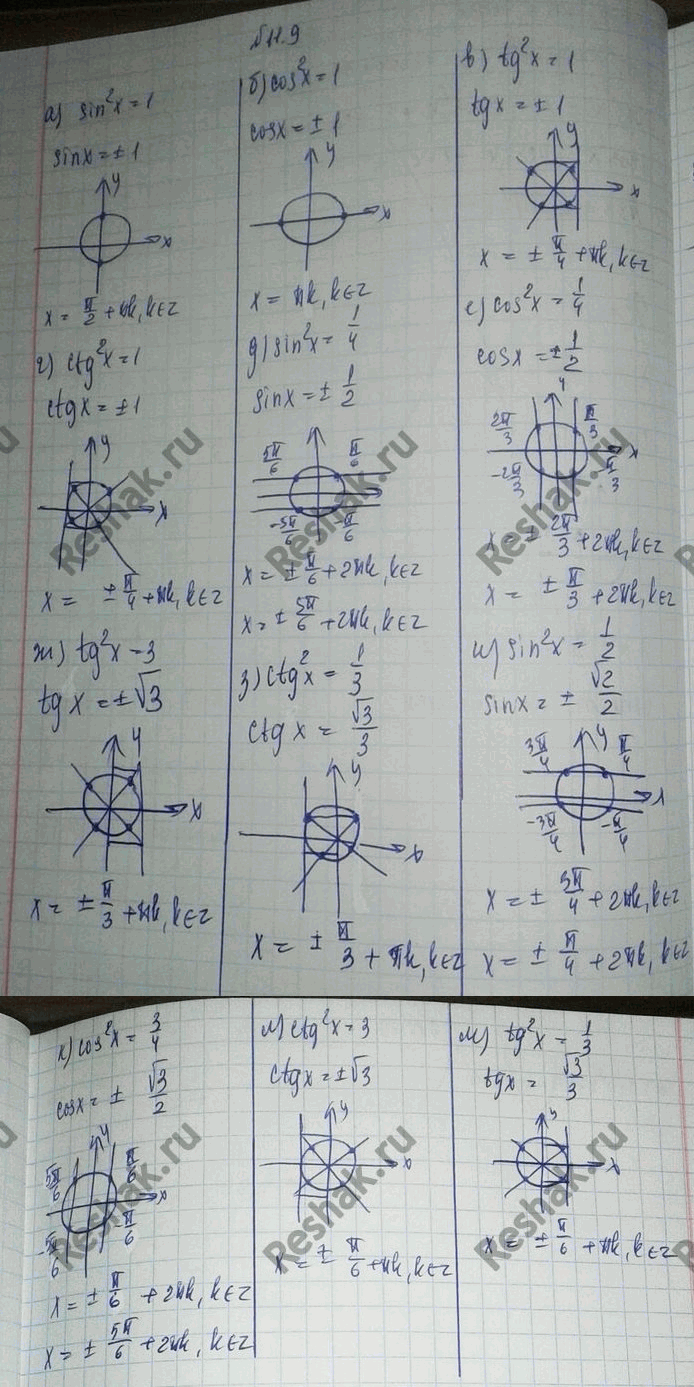 №11.9
а) sin²x = 1
sinx = ± 1
y
x
x = π/2 + πk, k∈z
г) ctg²x = 1
ctgx = ±1
y
x
x = ± π/4 + πk, k∈z
ж) tg²x = 3
tgx = ±√3
y
x
x = ± π/3 + πk, k∈z
б) cos²x = 1
cosx = ± 1
y
x
x = πk, k∈z
д) sin²x = 1/4
sinx = ± 1/2
5π/6 π/6
-5π/6 -π/6
x = ± π/6 + 2πk, k∈z
x = ± 5π/6 + 2πk, k∈z
з) ctg²x = 1/3
ctgx = √3/3
y
x
x = ± π/3 + πk, k∈z
в) tg²x = 1
tgx = ± 1
y
x
x = ± π/4 + πk, k∈z
е) cos²x = 1/4
cosx = ± 1/2
y
2π/3 π/3
x
-2π/3 -π/3
x = ± 2π/3 + 2πk, k∈z
x = ± π/3 + 2πk, k∈z
и) sin²x = 1/2
sinx = ± √2/2
y
3π/4 π/4
x
-3π/4 -π/4
x = ± 3π/4 + 2πk, k∈z
x = ± π/4 + 2πk, k∈z
к) cos²x = 3/4
cosx = ± √3/2
y
5π/6 π/6
x
-5π/6 -π/6
x = ± π/6 + 2πk, k∈z
x = ± 5π/6 + 2πk, k∈z
л) ctg²x = 3
ctgx = ±√3
y
x
x = ± π/6 + πk, k∈z
м) tg²x = 1/3
tgx = √3/3
y
x
x = ± π/6 + πk, k∈z
Reshak.ru
Reshak.ru
Reshak.ru
Reshak.ru
Reshak.ru
Reshak.ru